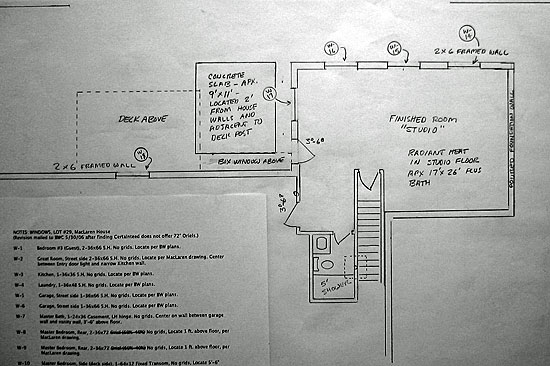 W-16
W-15
W-14
2x6 FRAMED WALL
CONCRETE
SLAB - APX.
9'x11' -
LOCATED 2'
FROM HOUSE
WALLS AND
ADJACENT TO
DECK POST
W-17
DECK ABOVE
FINISHED ROOM
"STUDIO"
RADIANT HEAT
IN STUDIO FLOOR
APX 17'x26' PLUS
BATH
POURED FOUNDATION WALL
3°-6⁸
BOX WINDOW ABOVE
2x6 FRAMED WALL
3°-6⁸
5' SHOWER
NOTES: WINDOWS, LOT #29, MacLaren House
(Revision mailed to BWC 5/30/06 after finding Certainteed does not offer 72" Oriels.)
W-1 Bedroom #3 (Guest), 2-36x66 S.H. No grids. Locate per BW plans.
W-2 Great Room, Street side 2-36x66 S.H. No grids. Locate per MacLaren drawing. Center
between Entry door light and narrow Kitchen wall.
W-3 Kitchen, 1-36x36 S.H. No grids, Locate per BW plans.
W-4 Laundry, 1-36x48 S.H. No grids. Locate per BW plans.
W-5 Garage, Street side 1-36x66 S.H. No grids. Locate per BW plans.
W-6 Garage, Street side 1-36x66 S.H. No grids. Locate per BW plans.
W-7 Master Bath, 1-24x36 Casement, LH hinge. No grids. Center on wall between garage
wall and vanity wall, 3'-6" above floor.
W-8 Master Bedroom, Rear, 2-36x72 No grids, Locate 1 ft. above floor, per
MacLaren drawing.
W-9 Master Bedroom, Rear, 2-36x72 No grids, Locate 1 ft. above floor, per
MacLaren drawing.
W-10 Master Bedroom, Side (deck side), 1-64x17 Fixed Transom, No grids, Locate 5'-6"